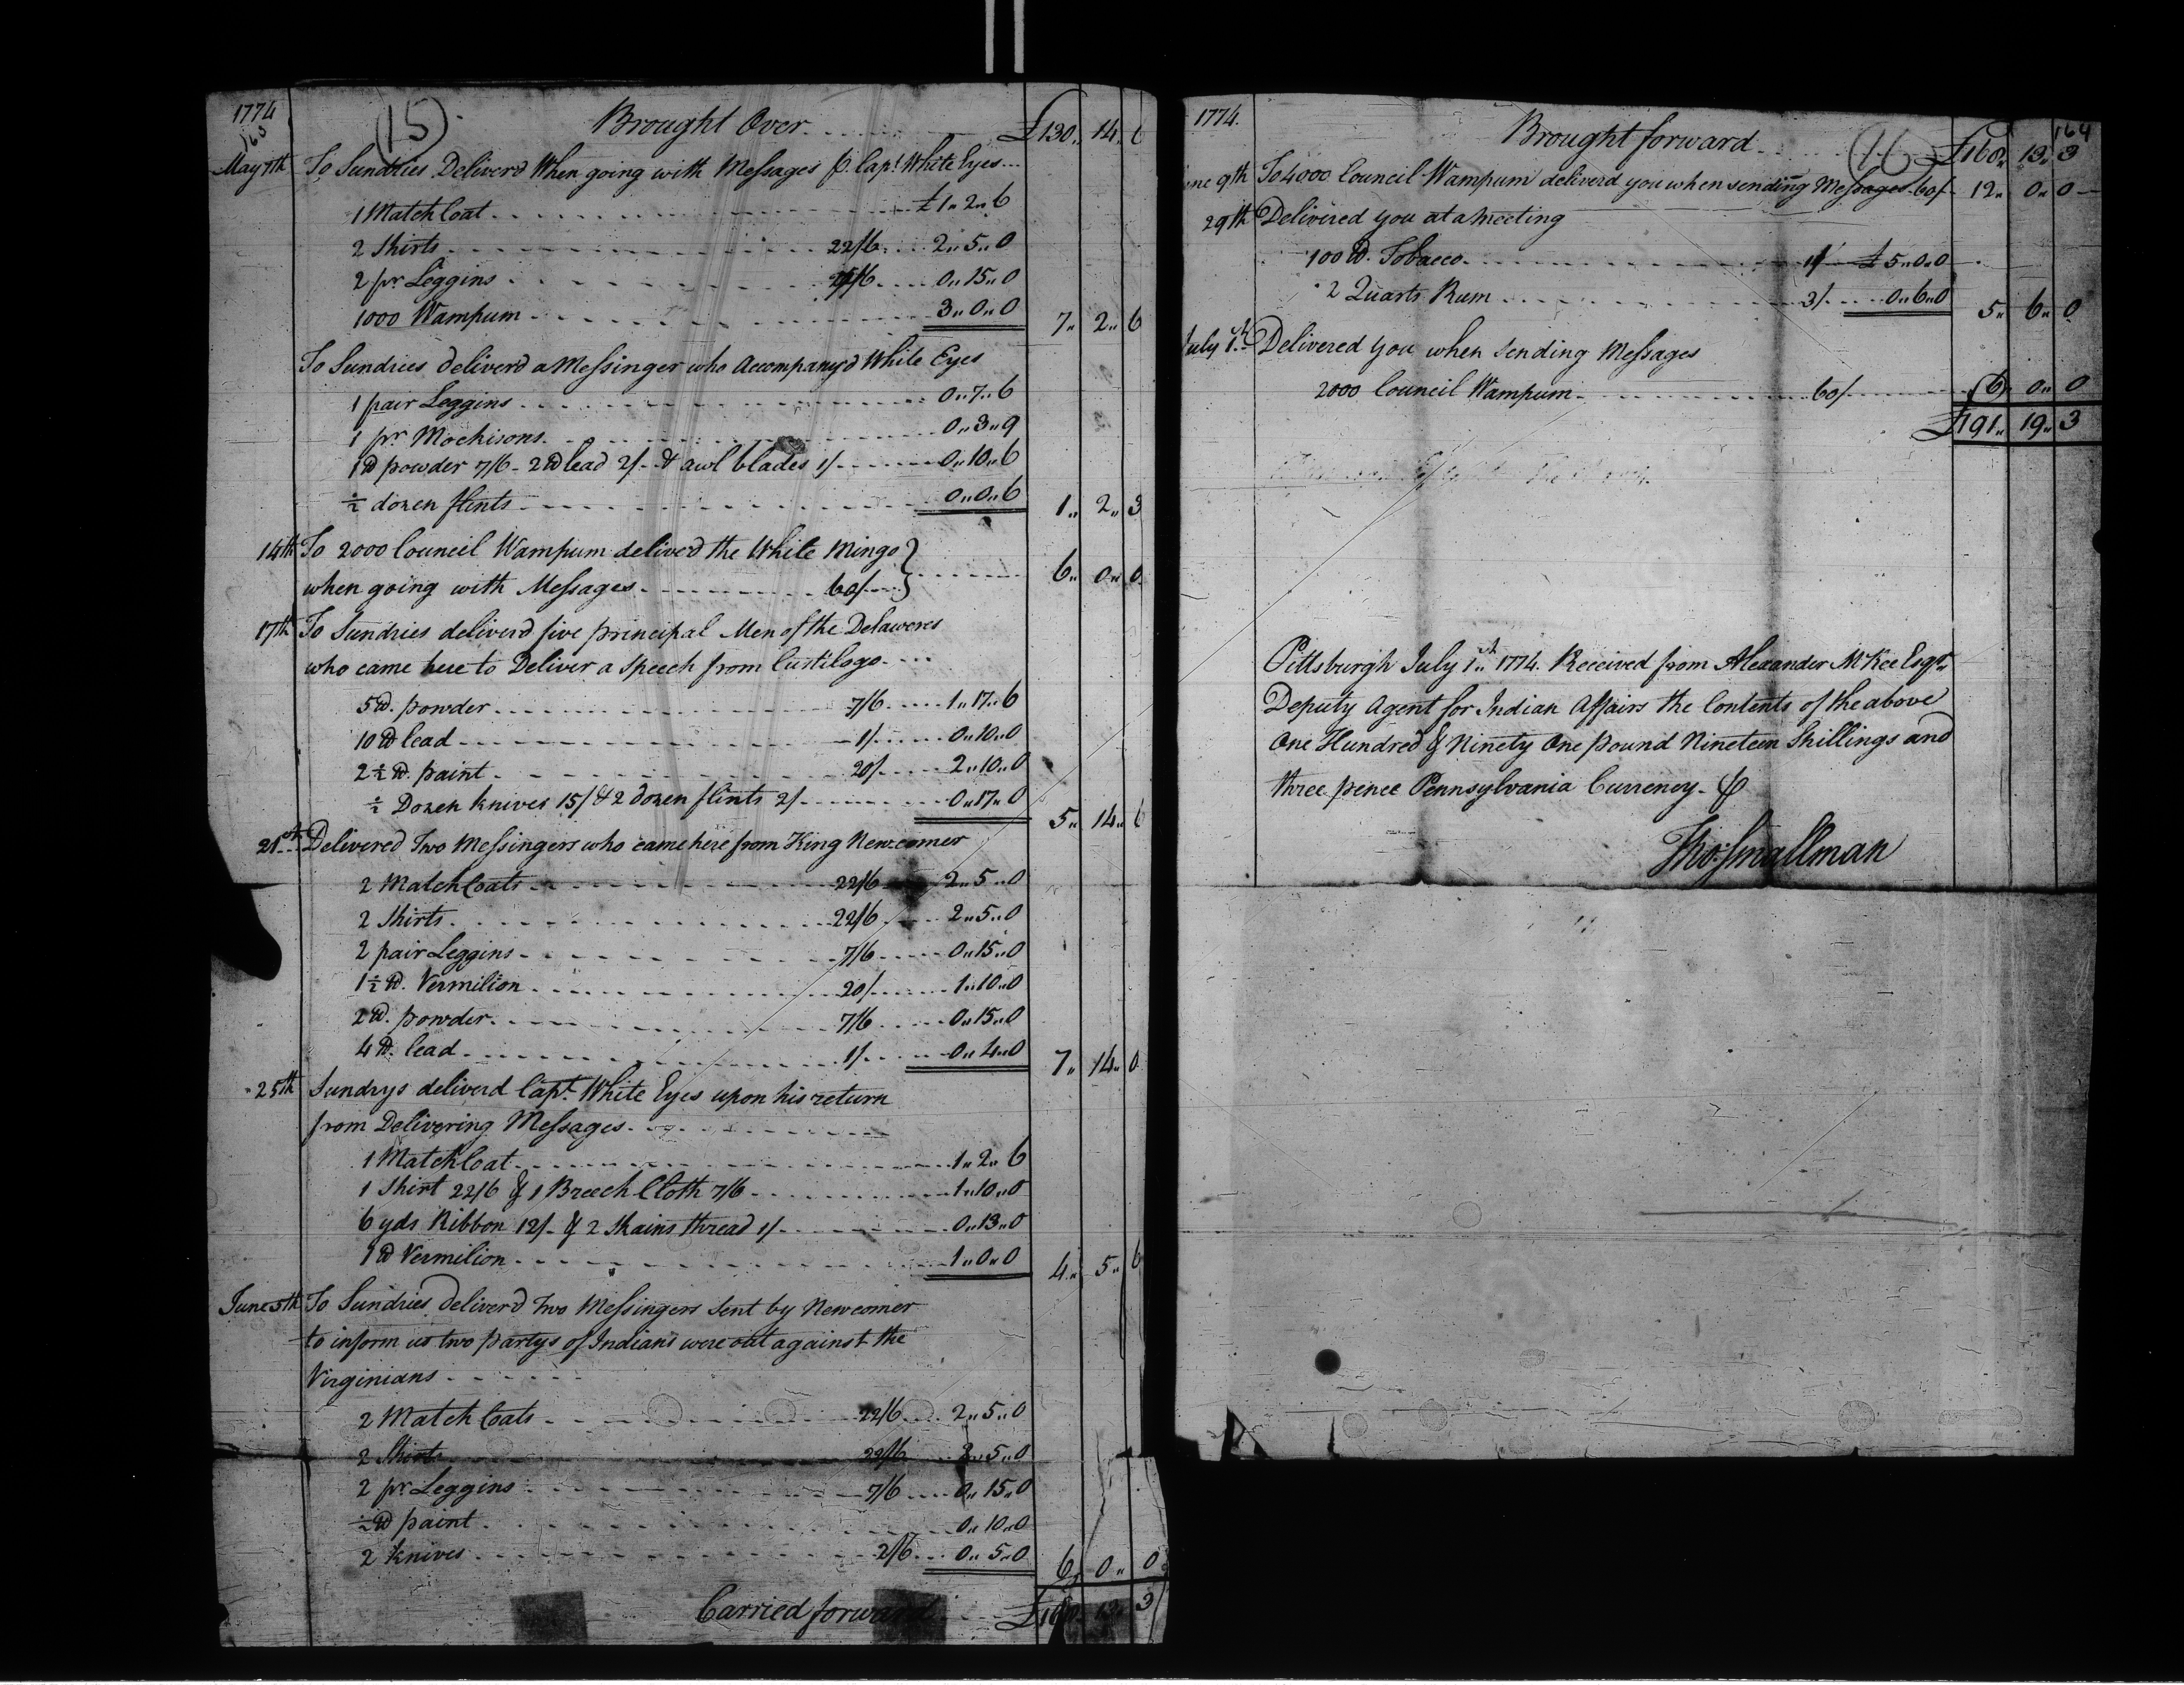 1774
163
(15)
Brought Over £130,, 14,, 6
May 7th To Sundries Deliver'd When going with Messages p. Capt. White Eyes
1 Match Coat £1,, 2,, 6
2 Shirts 22/6 2,, 5,, 0
2 pr. Leggins 7/6 0,, 15,, 0
1000 Wampum 3,, 0,, 0 7,, 2,, 6
To Sundries deliver'd a Messinger who Accompany'd White Eyes
1 pair Leggins 0,, 7,, 6
1 pr Mockisons 0,, 3,, 9
1 lb powder 7/6 - 2 lb lead 2/- & awl blades 1/ 0,, 10,, 6
1/2 dozen flints 0,, 0,, 6 1,, 2,, 3
14th To 2000 Council Wampum deliver'd the White Mingo
when going with Messages 60/ 6,, 0,, 0
17th To Sundries deliver'd five principal Men of the Delaweres
who came here to Deliver a Speech from Custilogo
5 lb. powder 7/6 1,, 17,, 6
10 lb lead 1/ 0,, 10,, 0
2 1/2 lb. paint 20/ 2,, 10,, 0
1/2 Dozen knives 15/ & 2 dozen flints 2/ 0,, 17,, 0 5,, 14,, 6
21st Delivered Two Messingers who came here from King Newcomer
2 Match Coats 22/6 2,, 5,, 0
2 Shirts 22/6 2,, 5,, 0
2 pair Leggins 7/6 0,, 15,, 0
1 1/2 lb. Vermilion 20/ 1,, 10,, 0
2 lb. powder 7/6 0,, 15,, 0
4 lb. lead 1/ 0,, 4,, 0 7,, 14,, 0
25th Sundrys deliverd Capt. White Eyes upon his return
from Delivering Messages
1 Match Coat 1,, 2,, 6
1 Shirt 22/6 & 1 Breech Cloth 7/6 1,, 10,, 0
6 yds Ribbon 12/- & 2 Skains thread 1/ 0,, 13,, 0
1 lb Vermilion 1,, 0,, 0 4,, 5,, 6
June 5th To Sundries deliver'd two Messingers sent by Newcomer
to inform us two partys of Indians were out against the
Virginians
2 Match Coats 22/6 2,, 5,, 0
2 Shirts 22/6 2,, 5,, 0
2 pr. Leggins 7/6 0,, 15,, 0
1/2 lb paint 0,, 10,, 0
2 knives 2/6 0,, 5,, 0 6,, 0,, 0
Carried forward £168,, 13,, 3
1774.
164
(16)
Brought forward £168,, 13,, 3
June 9th To 4000 Council Wampum deliverd you when sending Messages 60/ 12,, 0,, 0
29th Delivered you at a meeting
100 lb. Tobacco 1/ £5,, 0,, 0
2 Quarts Rum 3/ 0,, 6,, 0 5,, 6,, 0
July 1st Delivered you when sending Messages
2000 Council Wampum 60/ 6,, 0,, 0
£191,, 19,, 3
Pittsburgh July 1st 1774. Received from Alexander McKee Esqr.
Deputy Agent for Indian Affairs the Contents of the above
One Hundred & Ninety One pound Nineteen Shillings and
three pence Pennsylvania Currency
Thos. Smallman